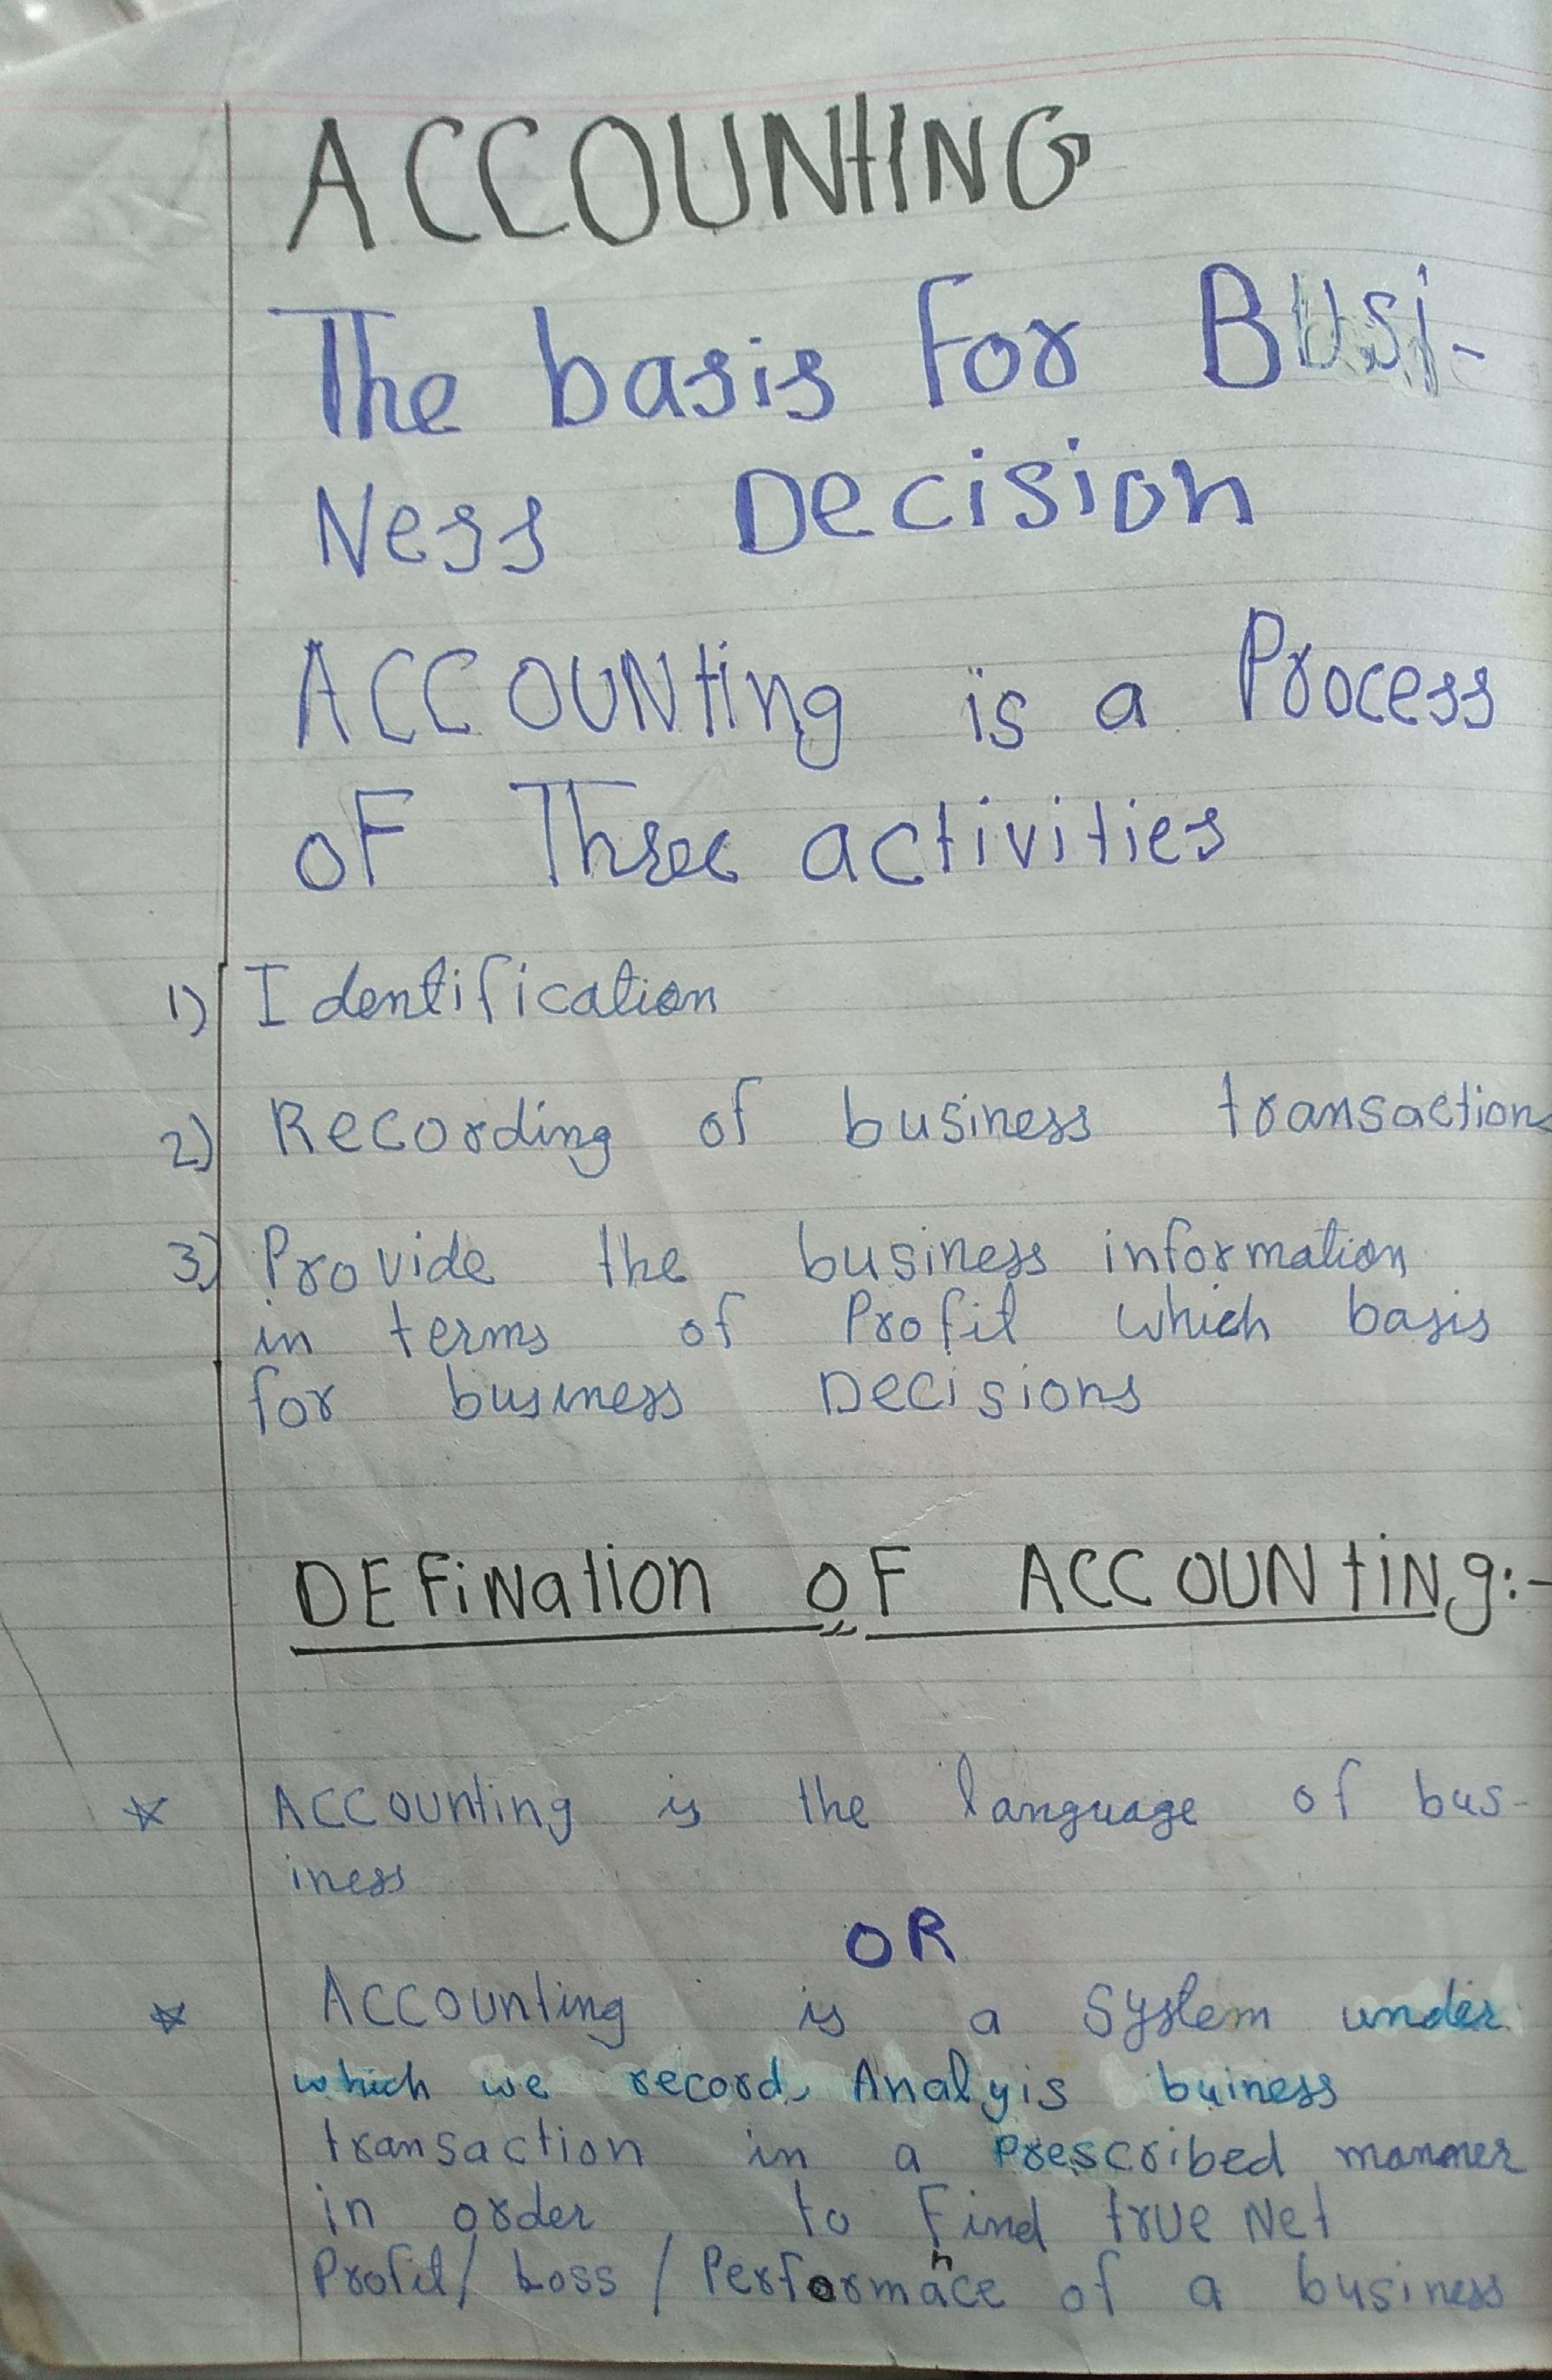 ACCOUNtING
The basis For Busi-
Ness Decision
ACCOUNting is a Process
oF Three activities
1) Identification
2) Recording of business transactions
3) Provide the business information
in terms of Profit which basis
for business Decisions
DEFiNation oF ACCOUNtiNg:-
☆ Accounting is the language of bus-
iness
OR
☆ Accounting is a System under
which we record, Analyis buiness
transaction in a Prescribed manner
in order to Find true Net
Profit/ Loss / Performance of a business